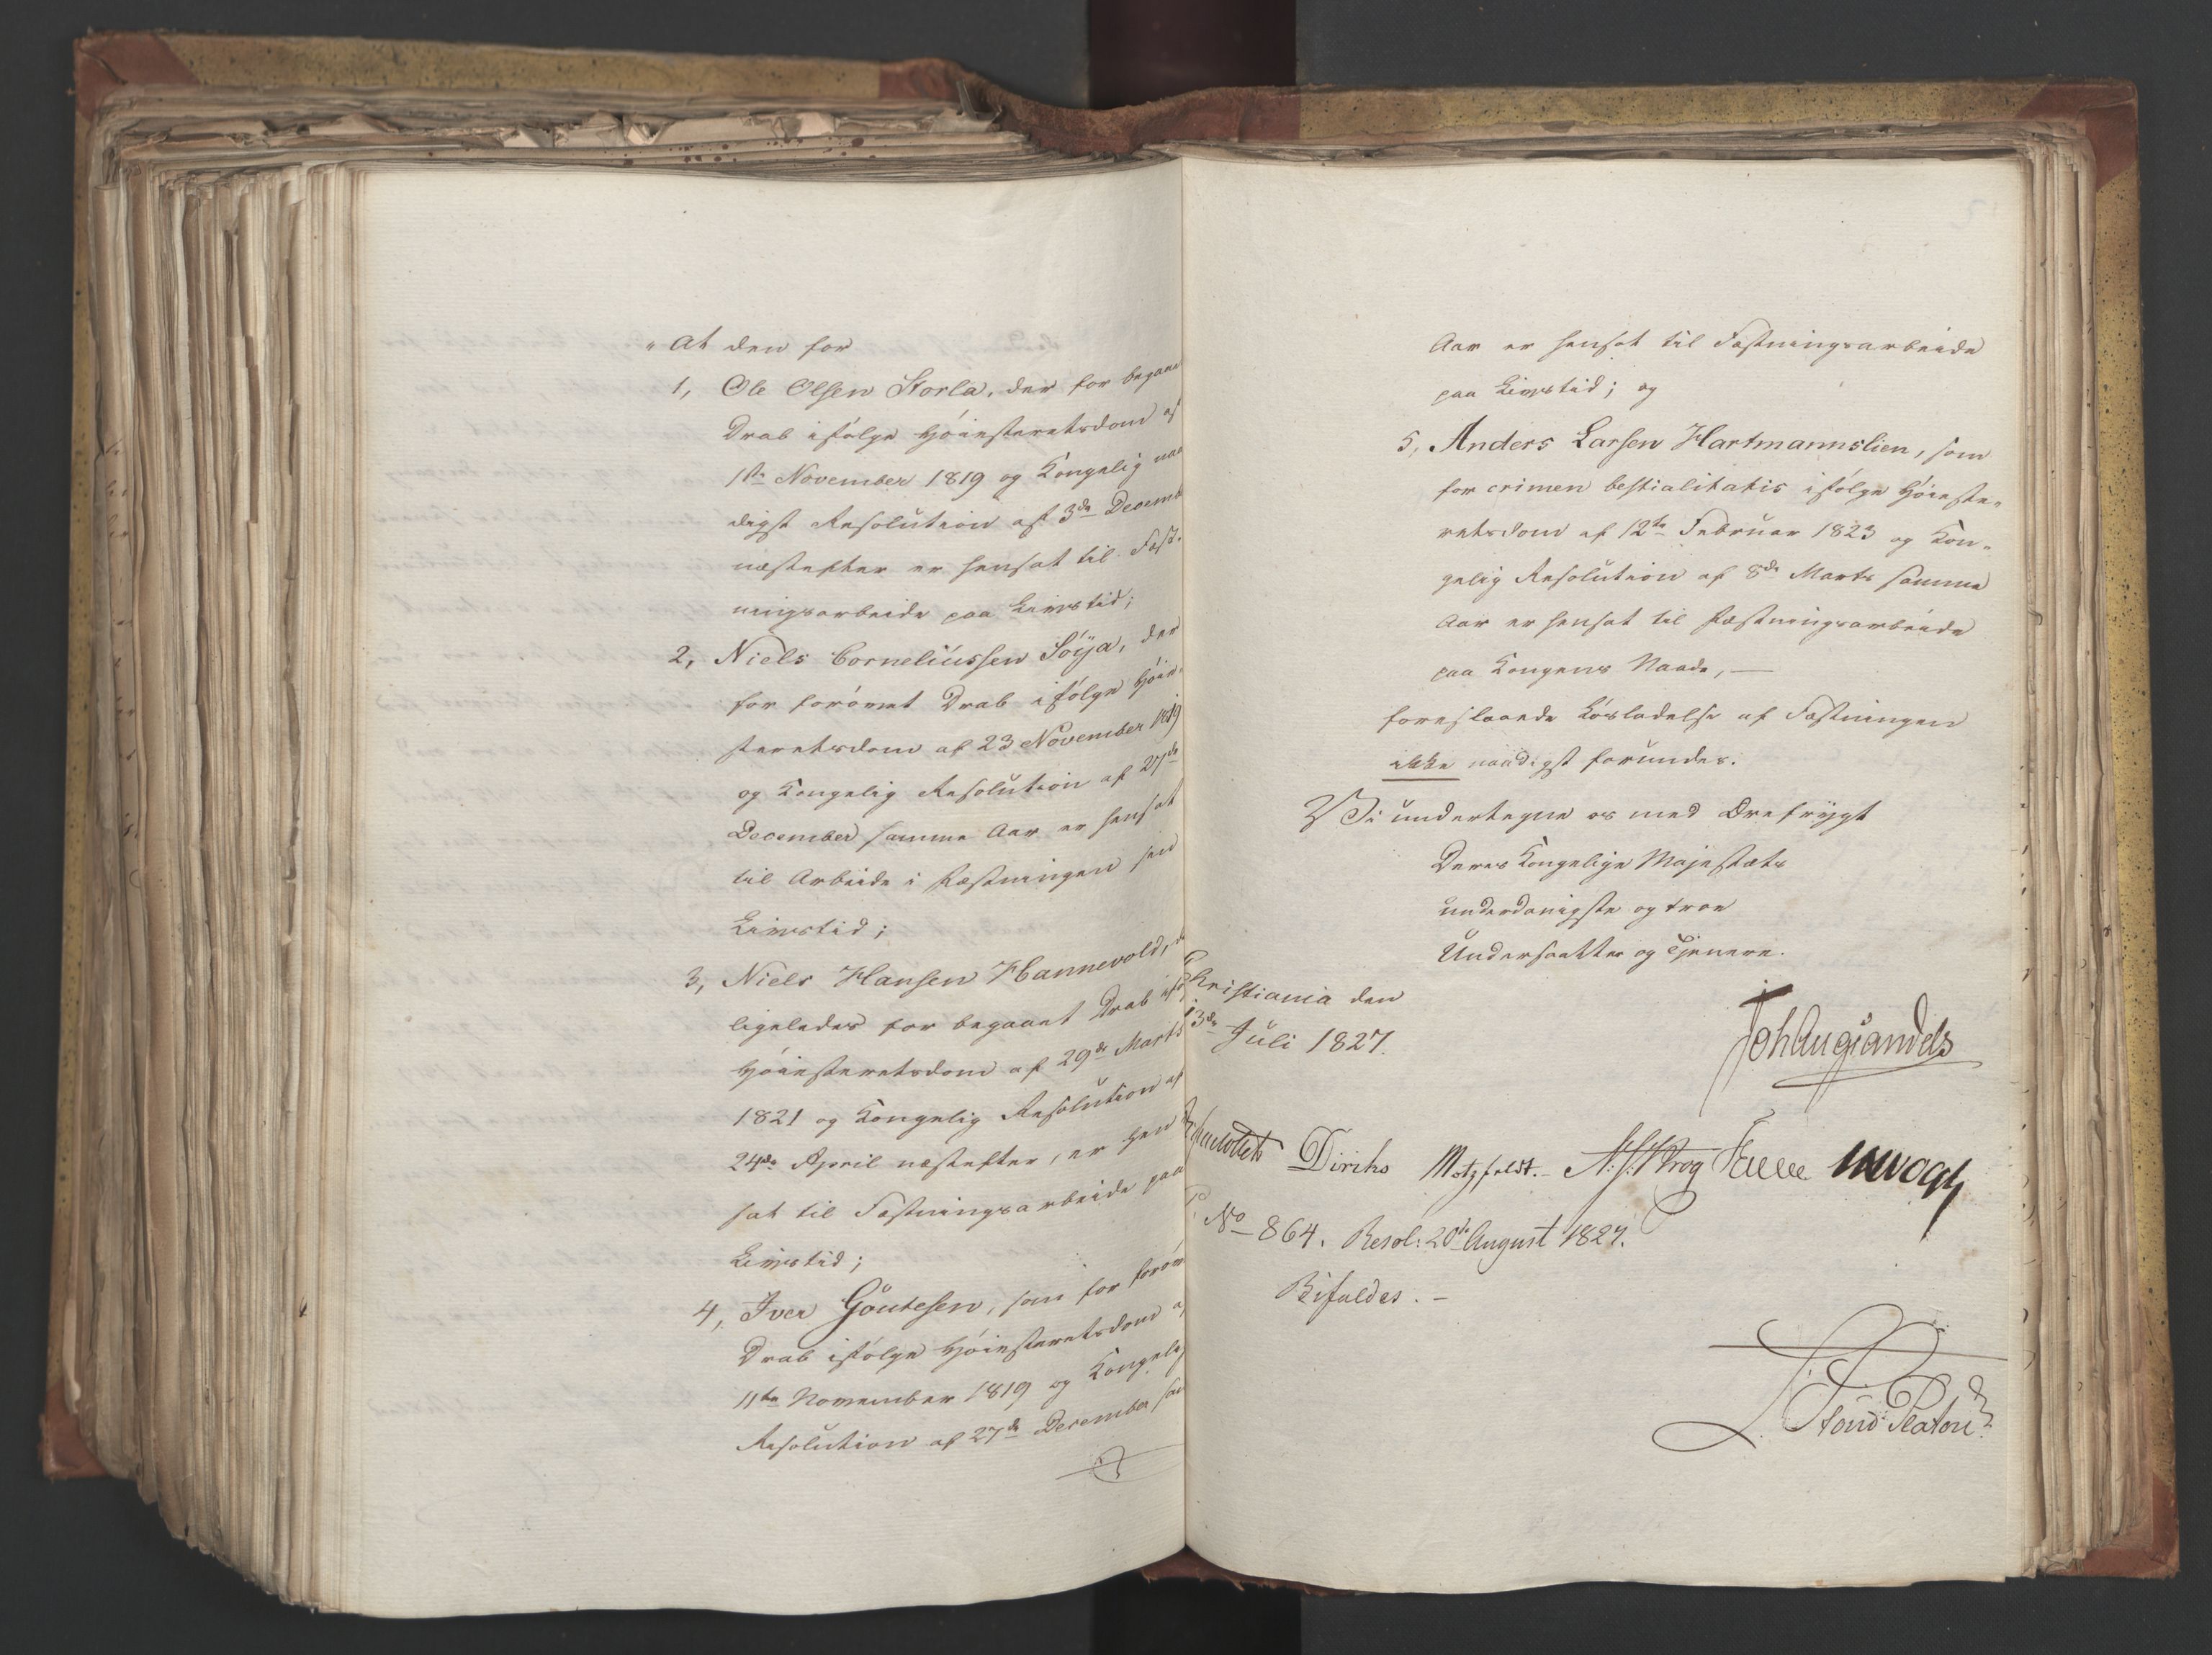 "At den for
1, Ole Olsen Storla, der for begaaet
Drab ifølge Høiesteretsdom af
1ste November 1819 og Kongelig naa
digst Resolution af 3de Decemb
næstefter er hensat til Fæst-
ningsarbeide paa Livstid;
2, Niels Corneliussen Söÿa, der
for forøvet Drab ifølge Høie-
steretsdom af 23 November 1819
og Kongelig Resolution af 27de
December samme Aar er hensat
til Arbeide i Fæstningen sin
Livstid;
3, Niels Hansen Hannevold,
ligeledes for begaaet Drab ifø
Høiesteretsdom af 29de Marts
1821 og Kongelig Resolution af
24de April næstefter, er hen
sat til Fæstningsarbeide paa
Livstid;
4, Iver Göutesen, som for forøv
Drab ifølge Høiesteretsdom a
11te November 1819 og Kongelig
Resolution af 27de December sam
Aar er hensat til Fæstningsarbeide
paa Livstid; og
5, Anders Larsen Hartmannslien, som
for crimen bestialitatis ifølge Høieste-
retsdom af 12te Februar 1823 og Kon-
gelig Resolution af 8de Marts samme
Aar er hensat til Fæstningsarbeide
paa Kongens Naade, —
foreslaaede Løsladelse af Fæstningen
ikke naadigst forundes.
Vi undertegne os med Ærefrygt
Deres Kongelige Majestæts
underdanigste og troe
Undersaatter og Tjenere.
Christiania den
13de Juli 1827.
Joh Aug Sandels
Diriks Motzfeldt. Krog Fasting Vogt
No 864. Resol: 20de August 1827.
Bifaldes. —